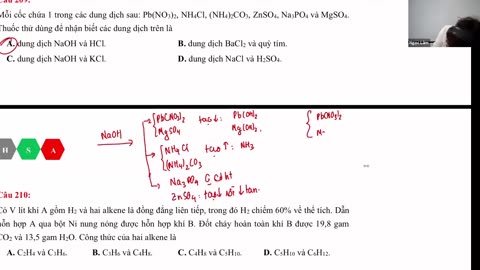 Câu 209:
Mỗi cốc chứa 1 trong các dung dịch sau: Pb(NO3)2, NH4Cl, (NH4)2CO3, ZnSO4, Na3PO4 và MgSO4.
Thuốc thử dùng để nhận biết các dung dịch trên là
A. dung dịch NaOH và HCl. B. dung dịch BaCl2 và quỳ tím.
C. dung dịch NaOH và KCl. D. dung dịch NaCl và H2SO4.
NaOH
Pb(NO3)2 tạo↓: Pb(OH)2
MgSO4 Mg(OH)2
Pb(NO3)2
NH4Cl tạo ↑: NH3
(NH4)2CO3
Na3PO4
ZnSO4: tạo↓ rồi ↓ tan.
H S A
Câu 210:
Có V lít khí A gồm H2 và hai alkene là đồng đẳng liên tiếp, trong đó H2 chiếm 60% về thể tích. Dẫn
hỗn hợp A qua bột Ni nung nóng được hỗn hợp khí B. Đốt cháy hoàn toàn khí B được 19,8 gam
CO2 và 13,5 gam H2O. Công thức của hai alkene là
A. C2H4 và C3H6. B. C3H6 và C4H8. C. C4H8 và C5H10. D. C5H10 và C6H12.